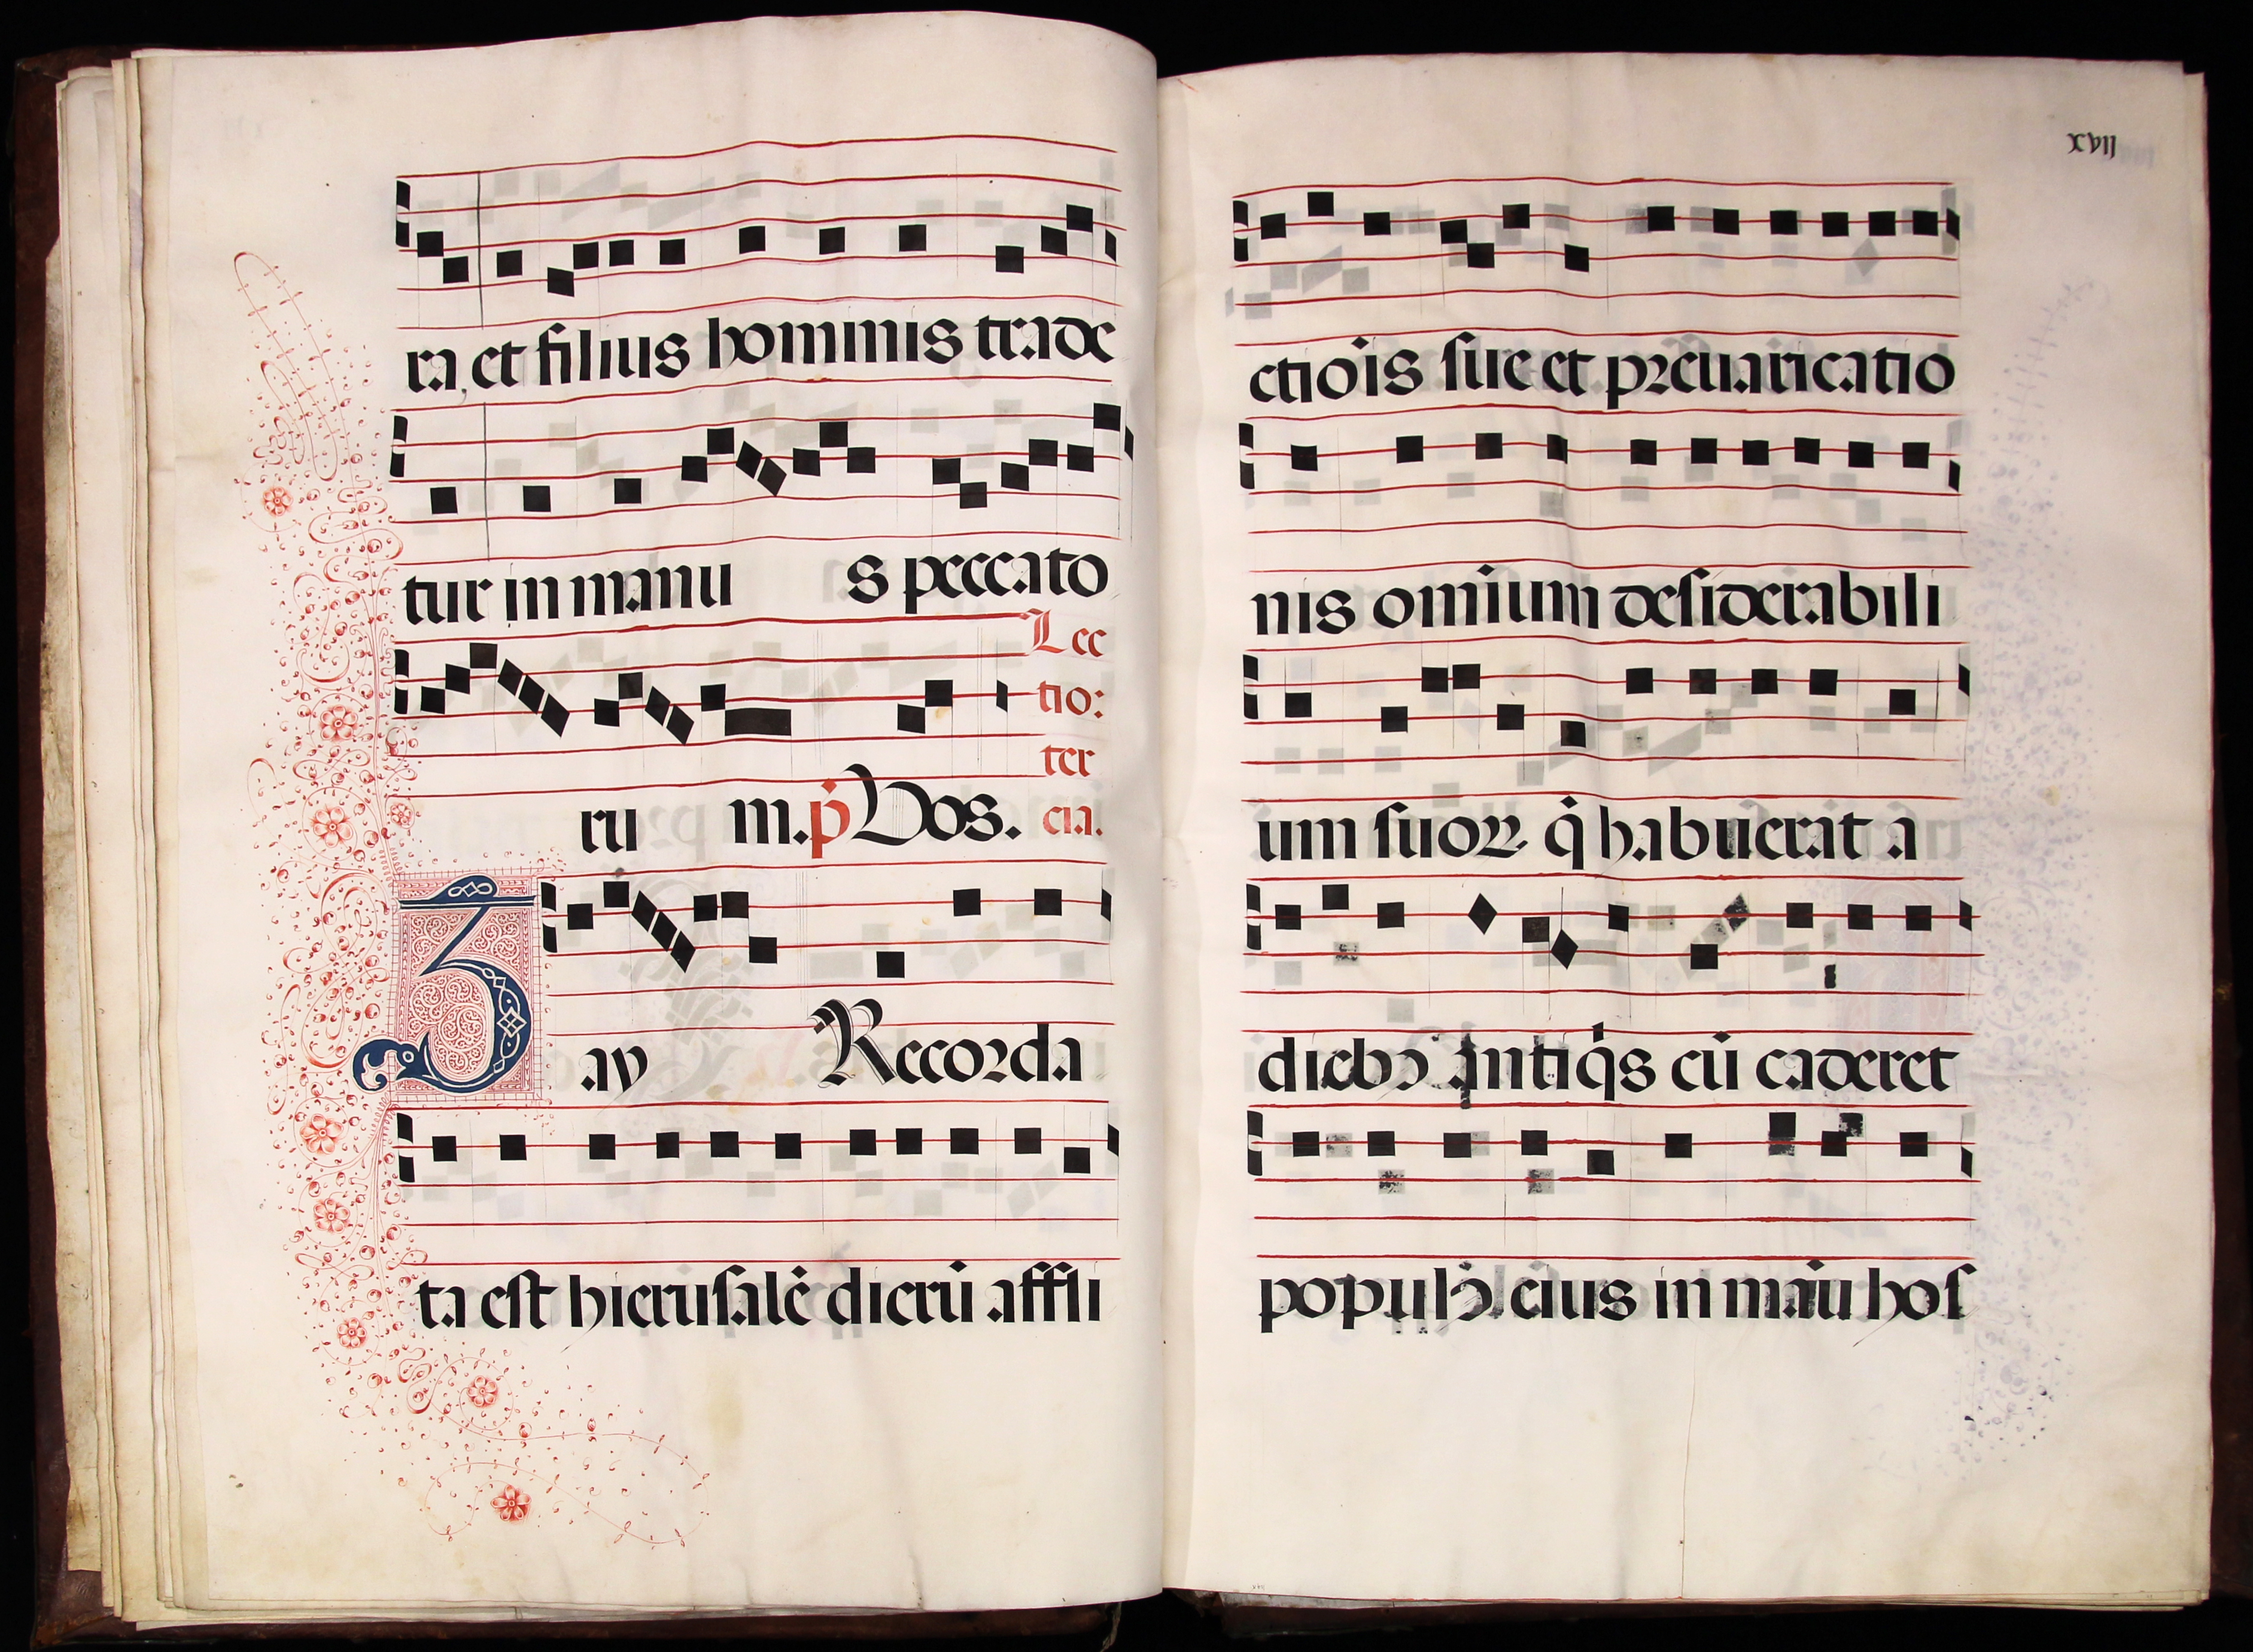 ra, et filius hominis trade
tur in manu s peccato
ru m. ṗ Vos.
Lec
tio:
ter
cia.
Zay Recorda
ta est hierusalē dierū affli
xvij
ctiōis sue et preuaricatio
nis omīum desiderabili
um suoꝝ q̇ habuerat a
dieb⁹ antiq̇s cū caderet
popul⁹ eius in manu hos